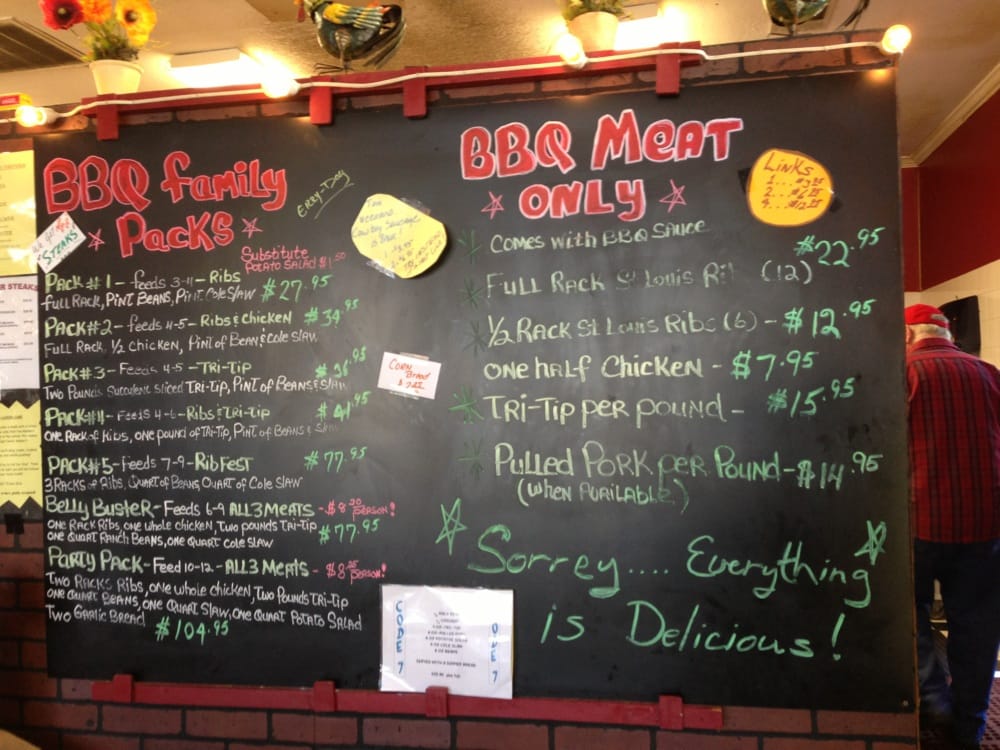 BBQ Family
Packs
Erry-Day
We got
STEAKS
Substitute
Potato Salad $1.50
Pack #1 - feeds 3-4 - Ribs
full Rack, Pint Beans, Pint Cole Slaw $27.95
Pack #2 - Feeds 4-5 - Ribs & Chicken $34.95
Full Rack, 1/2 Chicken, Pint of Bean & Cole Slaw
Pack #3 - Feeds 4-5 - Tri-Tip
Two Pounds Succulent Sliced Tri-Tip, Pint of Beans & Slaw
Pack #4 - Feeds 4-6 - Ribs & Tri-Tip $41.95
One Rack of Ribs, One pound of Tri-Tip, Pint of Beans & Slaw
Pack #5 - Feeds 7-9 - RibFest $77.95
3 Racks of Ribs, Quart of Beans, Quart of Cole Slaw
Belly Buster - Feeds 6-9 All 3 Meats - person!
One Rack Ribs, One whole chicken, Two pounds Tri-Tip $77.95
One Quart Ranch Beans, One Quart Cole Slaw
Party Pack - Feed 10-12 - All 3 Meats - person!
Two Racks Ribs, One whole chicken, Two Pounds Tri-Tip
One Quart Beans, One Quart Slaw, One Quart Potato Salad
Two Garlic Bread $104.95
Corn
Bread
CODE 7
CODE 7
BBQ Meat
Only
Links
Comes with BBQ Sauce
$22.95
Full Rack St Louis Ri (12)
1/2 Rack St Louis Ribs (6) - $12.95
One half Chicken - $7.95
Tri-Tip per pound - $15.95
Pulled Pork per Pound - $14.95
(when available)
Sorrey.... Everything
is Delicious!